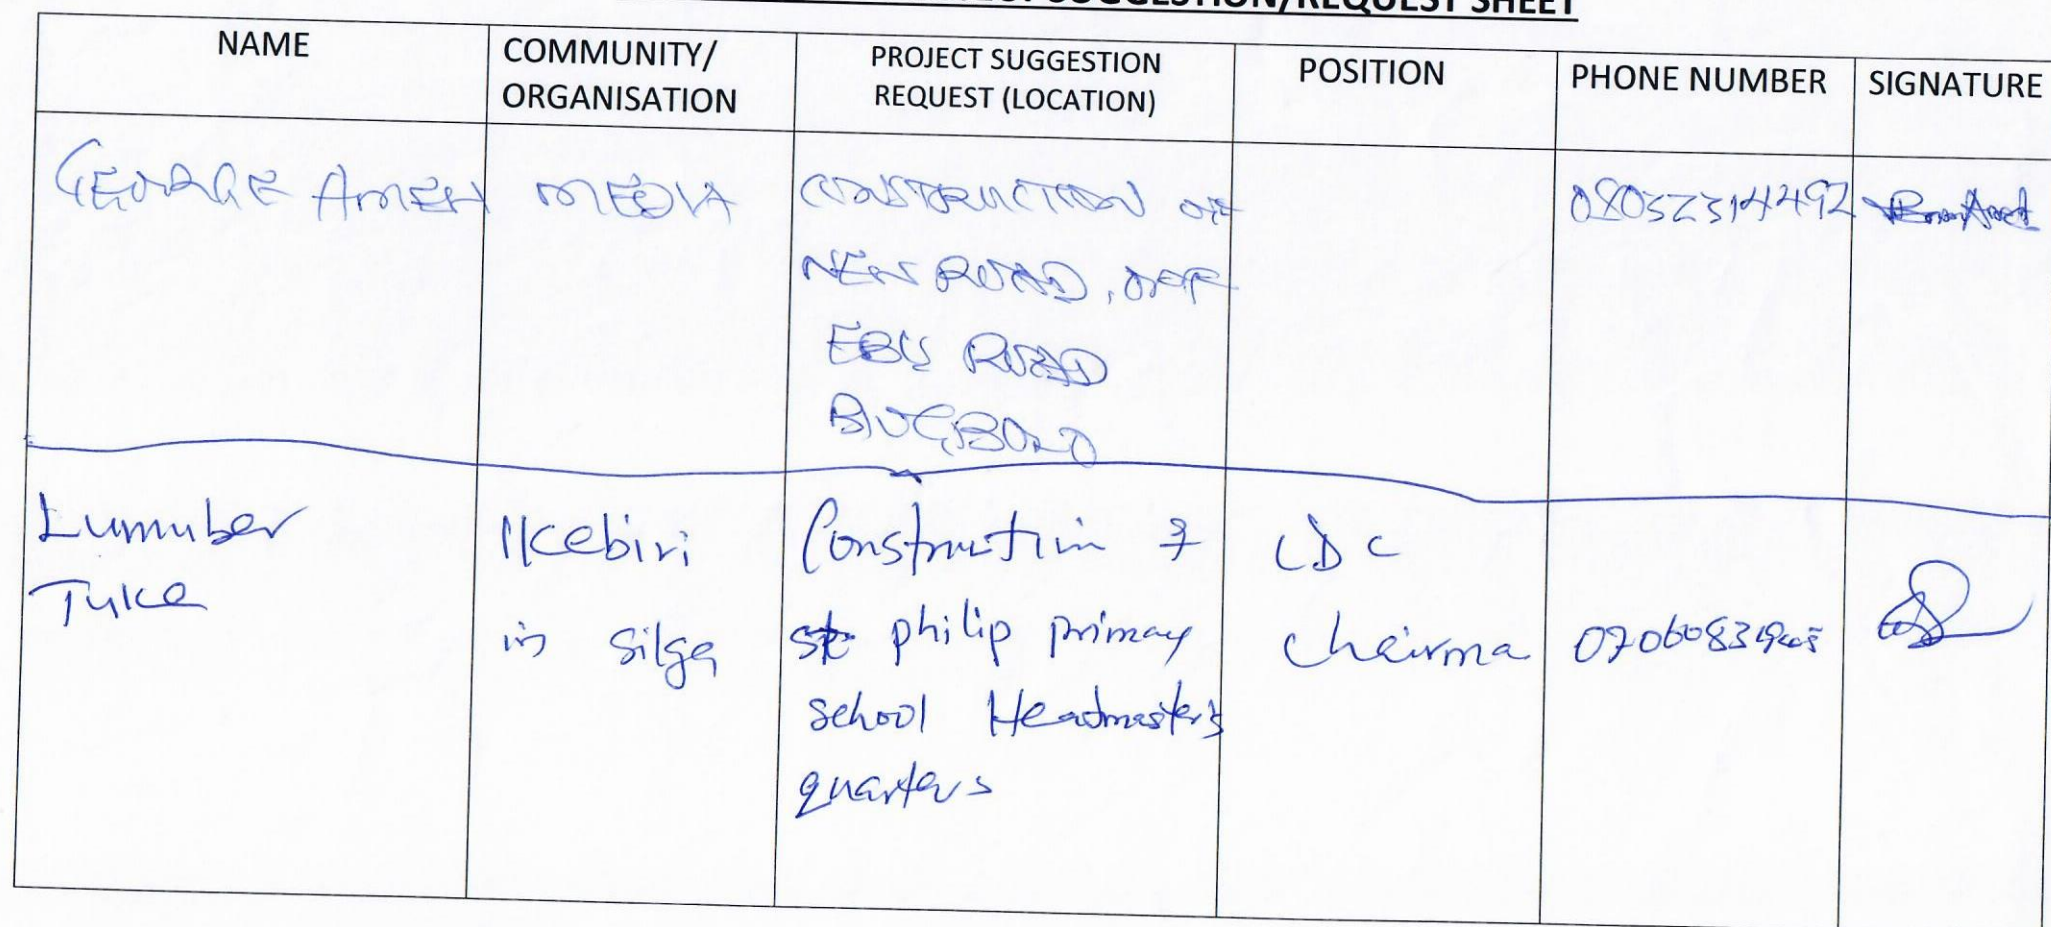 SUGGESTION/REQUEST SHEET
NAME
COMMUNITY/
ORGANISATION
PROJECT SUGGESTION
REQUEST (LOCATION)
POSITION
PHONE NUMBER
SIGNATURE
GEORGE AMEH
MEDIA
CONSTRUCTION OF
NEW ROAD, OFF
EBIS ROAD
08032314492
Lumuber
Tuke
Ikebiri
in Silga
Construction of
st philip primay
school Headmaster's
quarters
CDC
chairma